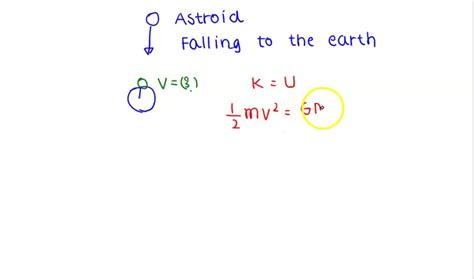 Astroid
Falling to the earth
V = (?)
K = U
1/2 mv² = G